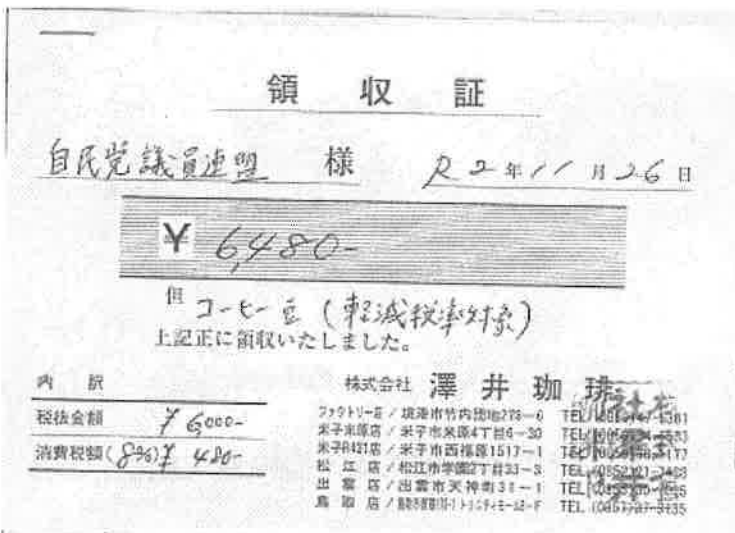 領収証
自民党議員連盟 様 R2年11月26日
¥ 6,480-
但 コーヒー豆(軽減税率対象)
上記正に領収いたしました。
内訳
税抜金額 ¥6,000-
消費税額(8%)¥ 480-
株式会社 澤井珈琲
ファクトリー店/境港市竹内団地278-6
米子米原店/米子市米原4丁目6-30
米子R431店/米子市西福原1517-1
松江店/松江市学園2丁目33-3
出雲店/出雲市天神町31-1
鳥取店/